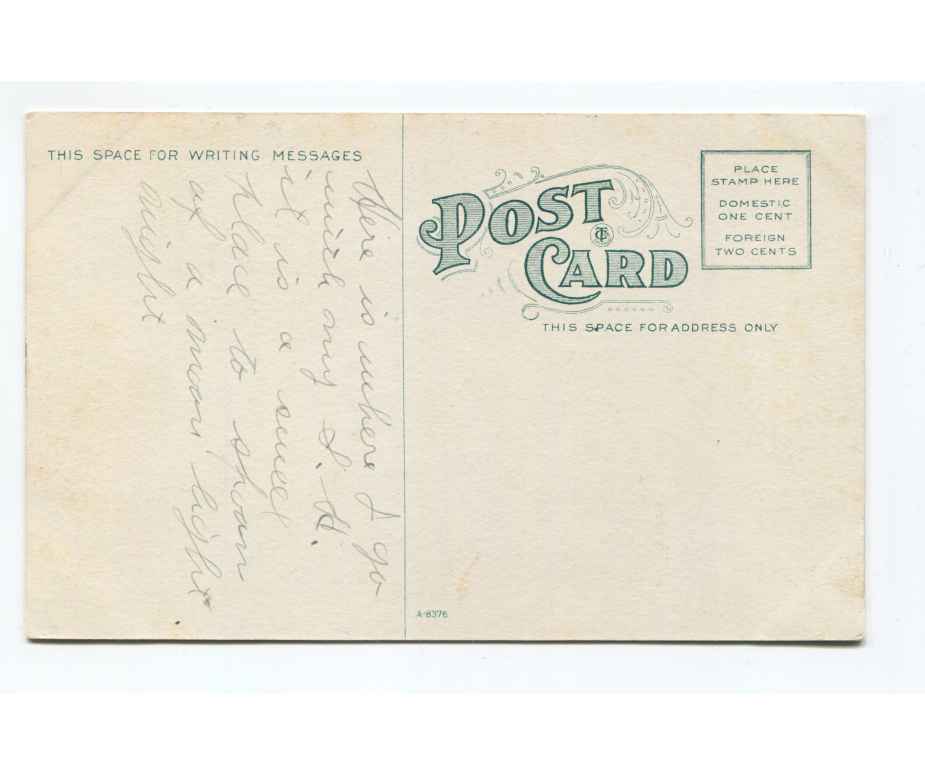 THIS SPACE FOR WRITING MESSAGES
Here is where I go
with my S. H.
it is a swell
place to spoon
of a moon light
night
POST
CARD
THIS SPACE FOR ADDRESS ONLY
PLACE
STAMP HERE
DOMESTIC
ONE CENT
FOREIGN
TWO CENTS
A-8376